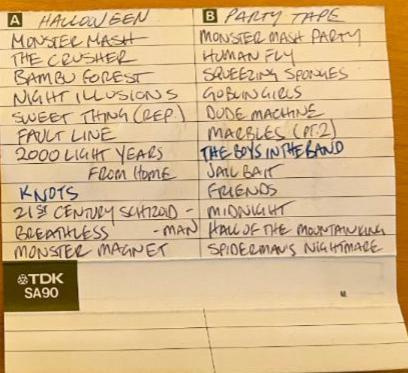 A HALLOWEEN
MONSTER MASH
THE CRUSHER
BAMBU FOREST
NIGHT ILLUSIONS
SWEET THING (REP.)
FAULT LINE
2000 LIGHT YEARS
FROM HOME
KNOTS
21ST CENTURY SCHIZOID -
BREATHLESS - MAN
MONSTER MAGNET
B PARTY TAPE
MONSTER MASH PARTY
HUMAN FLY
SQUEEZING SPONGES
GOBLIN GIRLS
DUDE MACHINE
MARBLES (PT.2)
THE BOYS IN THE BAND
JAIL BAIT
FRIENDS
MIDNIGHT
HALL OF THE MOUNTAIN KING
SPIDERMAN'S NIGHTMARE
TDK
SA90